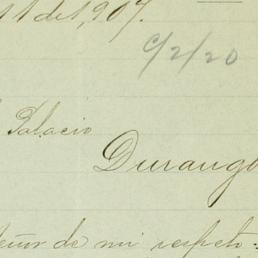 11 de 1,907.
c/2/20
Palacio
Durango
eñor de mi respeto: